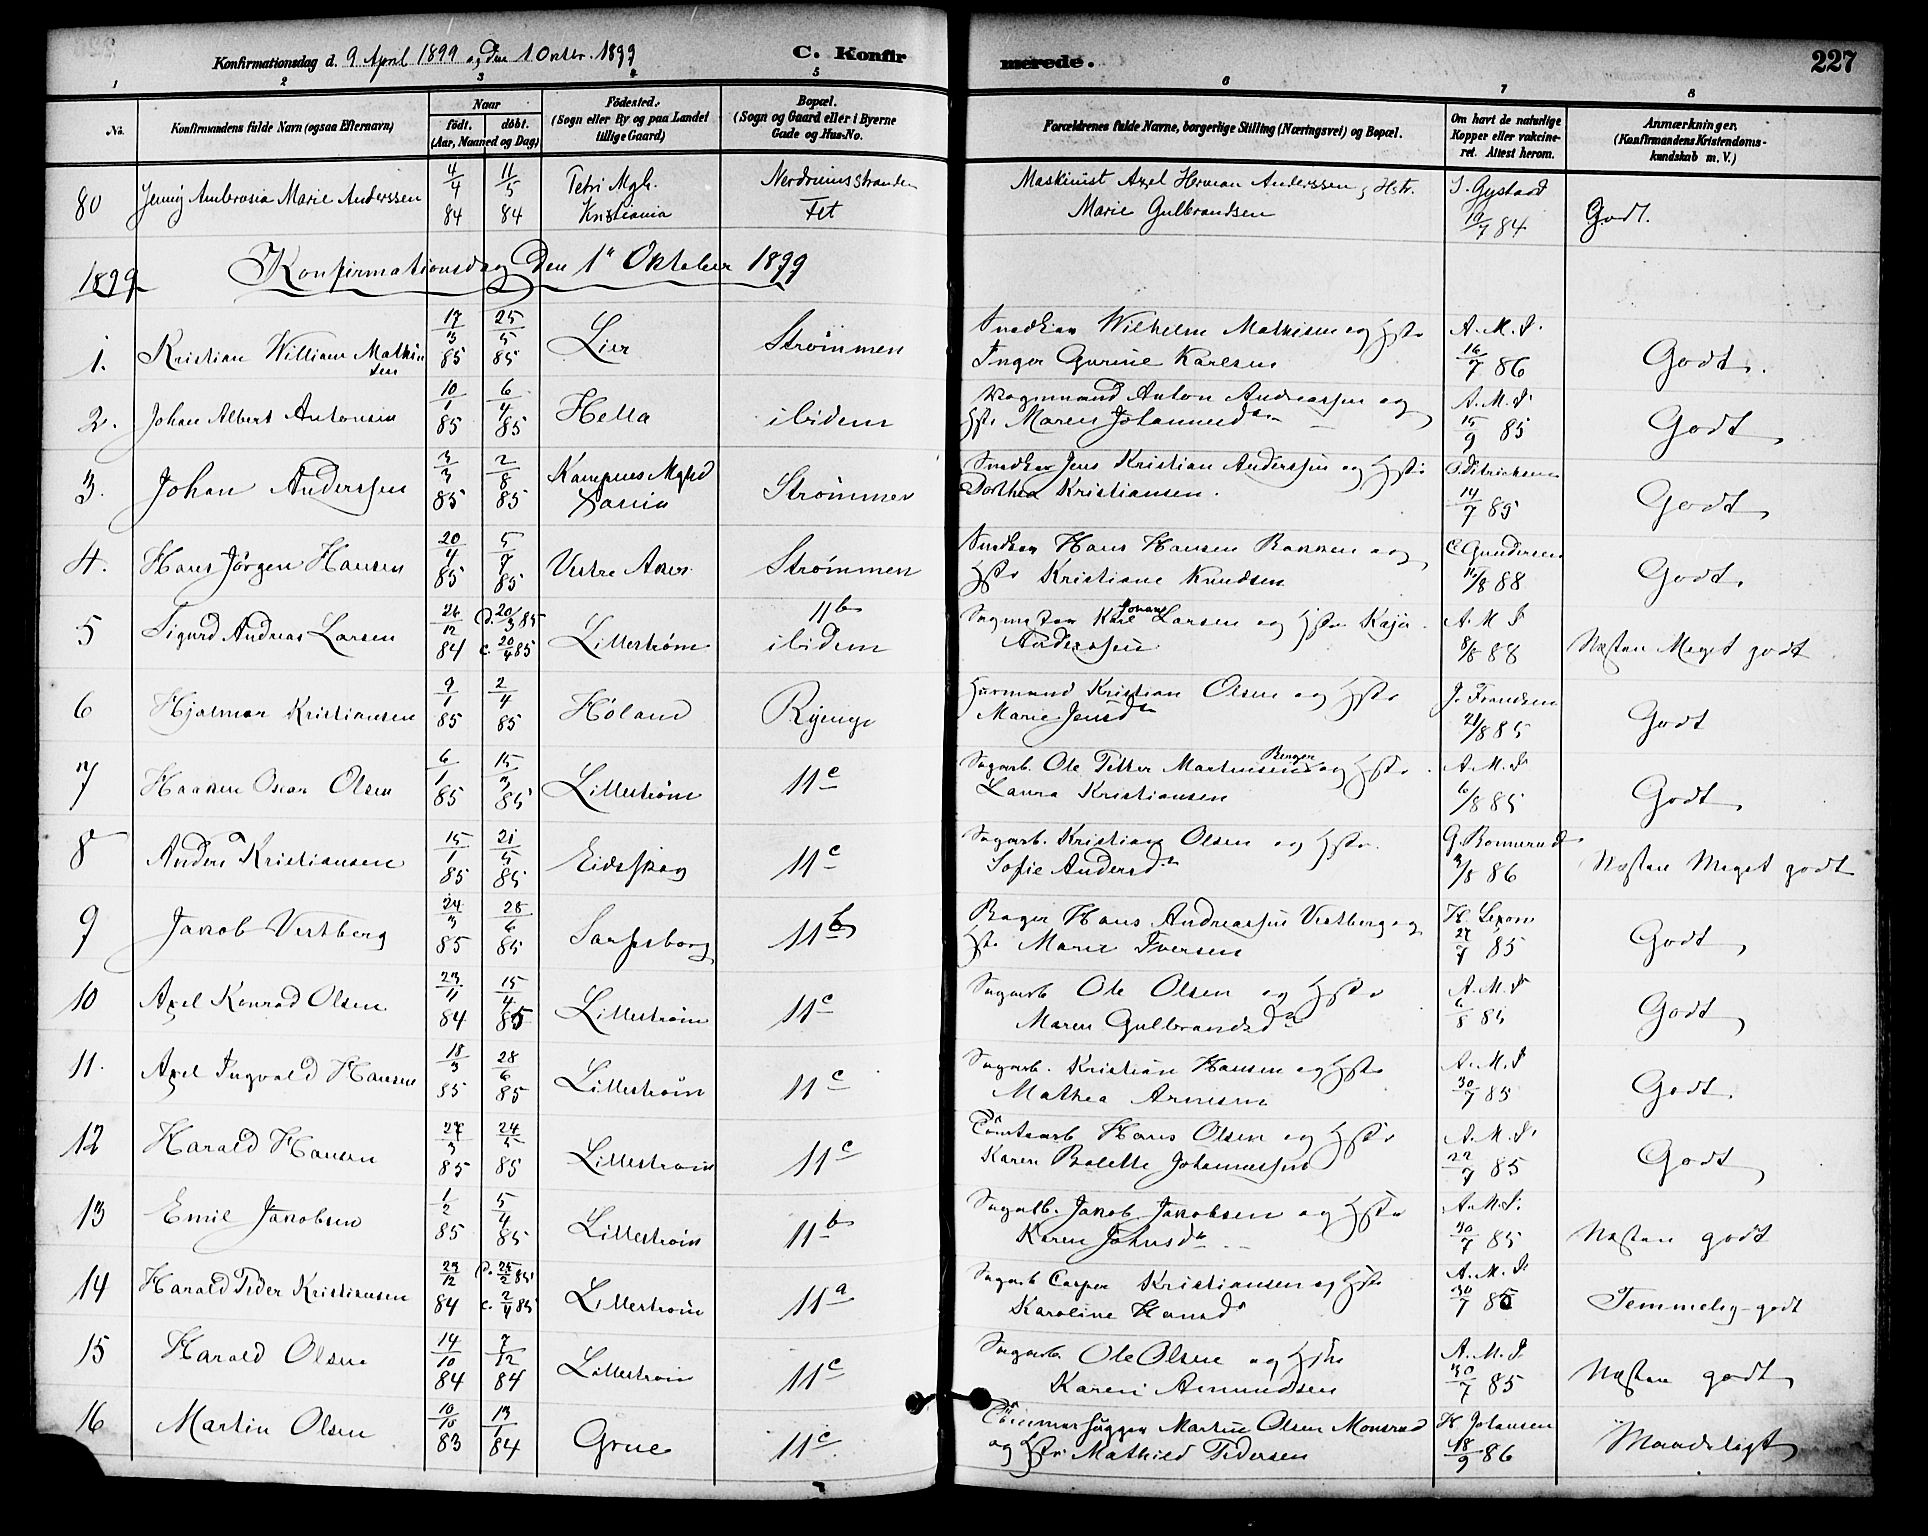 Konfirmationsdag d. 9 April 1899 og den 1 Oktbr. 1899
C. Konfirmerede.
227
1 2 3 4 5 6 7 8
No.
Konfirmandens fulde Navn (ogsaa Efternavn)
Naar
født. døbt.
(Aar, Maaned og Dag)
Fødested.
(Sogn eller By og paa Landet
tillige Gaard)
Bopæl.
(Sogn og Gaard eller i Byerne
Gade og Hus-No.
Forældrenes fulde Navne, borgerlige Stilling (Næringsvei) og Bopæl.
Om havt de naturlige
Kopper eller vakcine-
ret. Attest herom.
Anmærkninger.
(Konfirmandens Kristendoms-
kundskab m. V.)
80 Jenny Ambrosia Marie Anderssen 4/4 84 11/5 84 Petri Mgh. Kristiania Nordrumsstranden Fet
Maskinist Axel Herman Anderssen og Hstr.
Marie Gulbrandsen
Gystad 19/7 84 Godt.
1899 Konfirmationsdag den 1ste Oktober 1899
1. Kristian William Mathisen 17/3 85 25/5 85 Lier Strømmen
Snedker Wilhelm Mathisen og Hstr
Inger Gurine Karlsen
A. M. S. 16/7 86 Godt.
2. Johan Albert Antonsen 10/1 85 6/4 85 Hella ibidem
Vognmand Anton Andreassen og
Hstr Maren Johannesdtr
A. M. S. 15/9 85 Godt
3. Johan Anderssen 3/3 85 2/8 85 Kampens Mghd Xania Strømmen
Snedker Jens Kristian Anderssen og Hstr
Dorthea Kristiansen.
14/7 85 Godt
4. Hans Jörgen Hansen 20/4 85 5/7 85 Vestre Aker Strømmen
Snedker Hans Hansen Bakken og
Hstr Kristiane Knudsen
C Gundersen 12/8 88 Godt.
5 Sigurd Andreas Larsen 26/12 84 d. 20/3 85 c. 20/4 85 Lillestrøm 11b ibidem
Karl Johan Larsen og Hstr Kaja
Anderssen
A. M. S 8/8 88 Næsten Meget godt
6 Hjalmar Kristiansen 9/1 85 2/4 85 Høland Rýenge
Husmand Kristian Olsen og Hstr
Marie Jensdtr
J. Frandsen 21/8 85 Godt
7 Haakon Oscar Olsen 6/1 85 15/3 85 Lillestrøm 11c
Sagarb. Ole Petter Martinsen Bingen og Hstr
Laura Kristiansen
A. M. S. 6/8 85 Godt
8 Anders Kristiansen 15/1 85 21/5 85 Eidsskog 11c
Sagarb. Kristian Olsen og Hstr.
Sofie Andersdtr
G. Bonnerud 3/8 86 Næsten Meget godt
9 Jakob Vestberg 24/3 85 28/6 85 Sarpsborg 11b
Bager Hans Andreassen Vestberg og
Hstr Marie Iversen
27/7 85 Godt
10 Axel Konrad Olsen 23/11 84 15/4 85 Lillestrøm 11c
Sagarb Ole Olsen og Hstr
Maren Gulbrandsdtr
A. M. S 6/8 85 Godt
11. Axel Ingvald Hansen 18/3 85 28/6 85 Lillestrøm 11c
Sagarb. Kristian Hansen og Hstr
Mathea Arnesen
A. M. S 30/7 85 Godt
12 Harald Hansen 27/3 85 24/5 85 Lillestrøm 11c
Tomtearb Hans Olsen og Hstr
Karen Bolette Johannessen
A. M. S. 22/7 85 Godt
13 Emil Jakobsen 1/2 85 5/4 85 Lillestrøm 11b
Sagarb. Jakob Jakobsen og Hstr
Karen Johnsdtr
A. M. S. 30/7 85 Næsten godt
14 Harald Peder Kristiansen 29/12 84 d. 25/2 85 c. 2/4 85 Lillestrøm 11a
Sagarb Casper Kristiansen og Hstr
Karoline Hansdtr
A. M. S 30/7 85 Temmelig godt
15 Harald Olsen 14/10 84 7/12 84 Lillestrøm 11c
Sagarb. Ole Olsen og Hstr
Karen Amundsen
A. M. S 30/7 85 Næsten godt
16 Martin Olsen 10/10 83 13/1 84 Grue 11c
Tømmerhugger Martin Olsen Monsrud
og Hstr Mathild Pedersen
H Johansen 18/9 86 Maadeligt